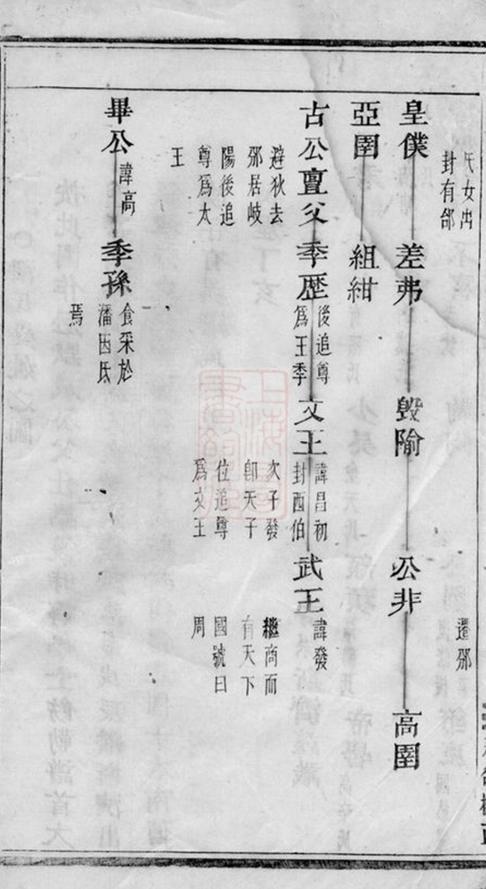 氏女出
封有邰
遷邠
皇僕 差弗 毁隃 公非 高圉
亞圉 組紺
古公亶父 季歷 後追尊
為王季 文王 諱昌初
封西伯 武王 諱發
避狄去
邠居岐
陽後追
尊為太
王
次子發
即天子
位追尊
為文王
繼商而
有天下
國號曰
周
畢公 諱高 季孫 食采於
潘因氏
焉